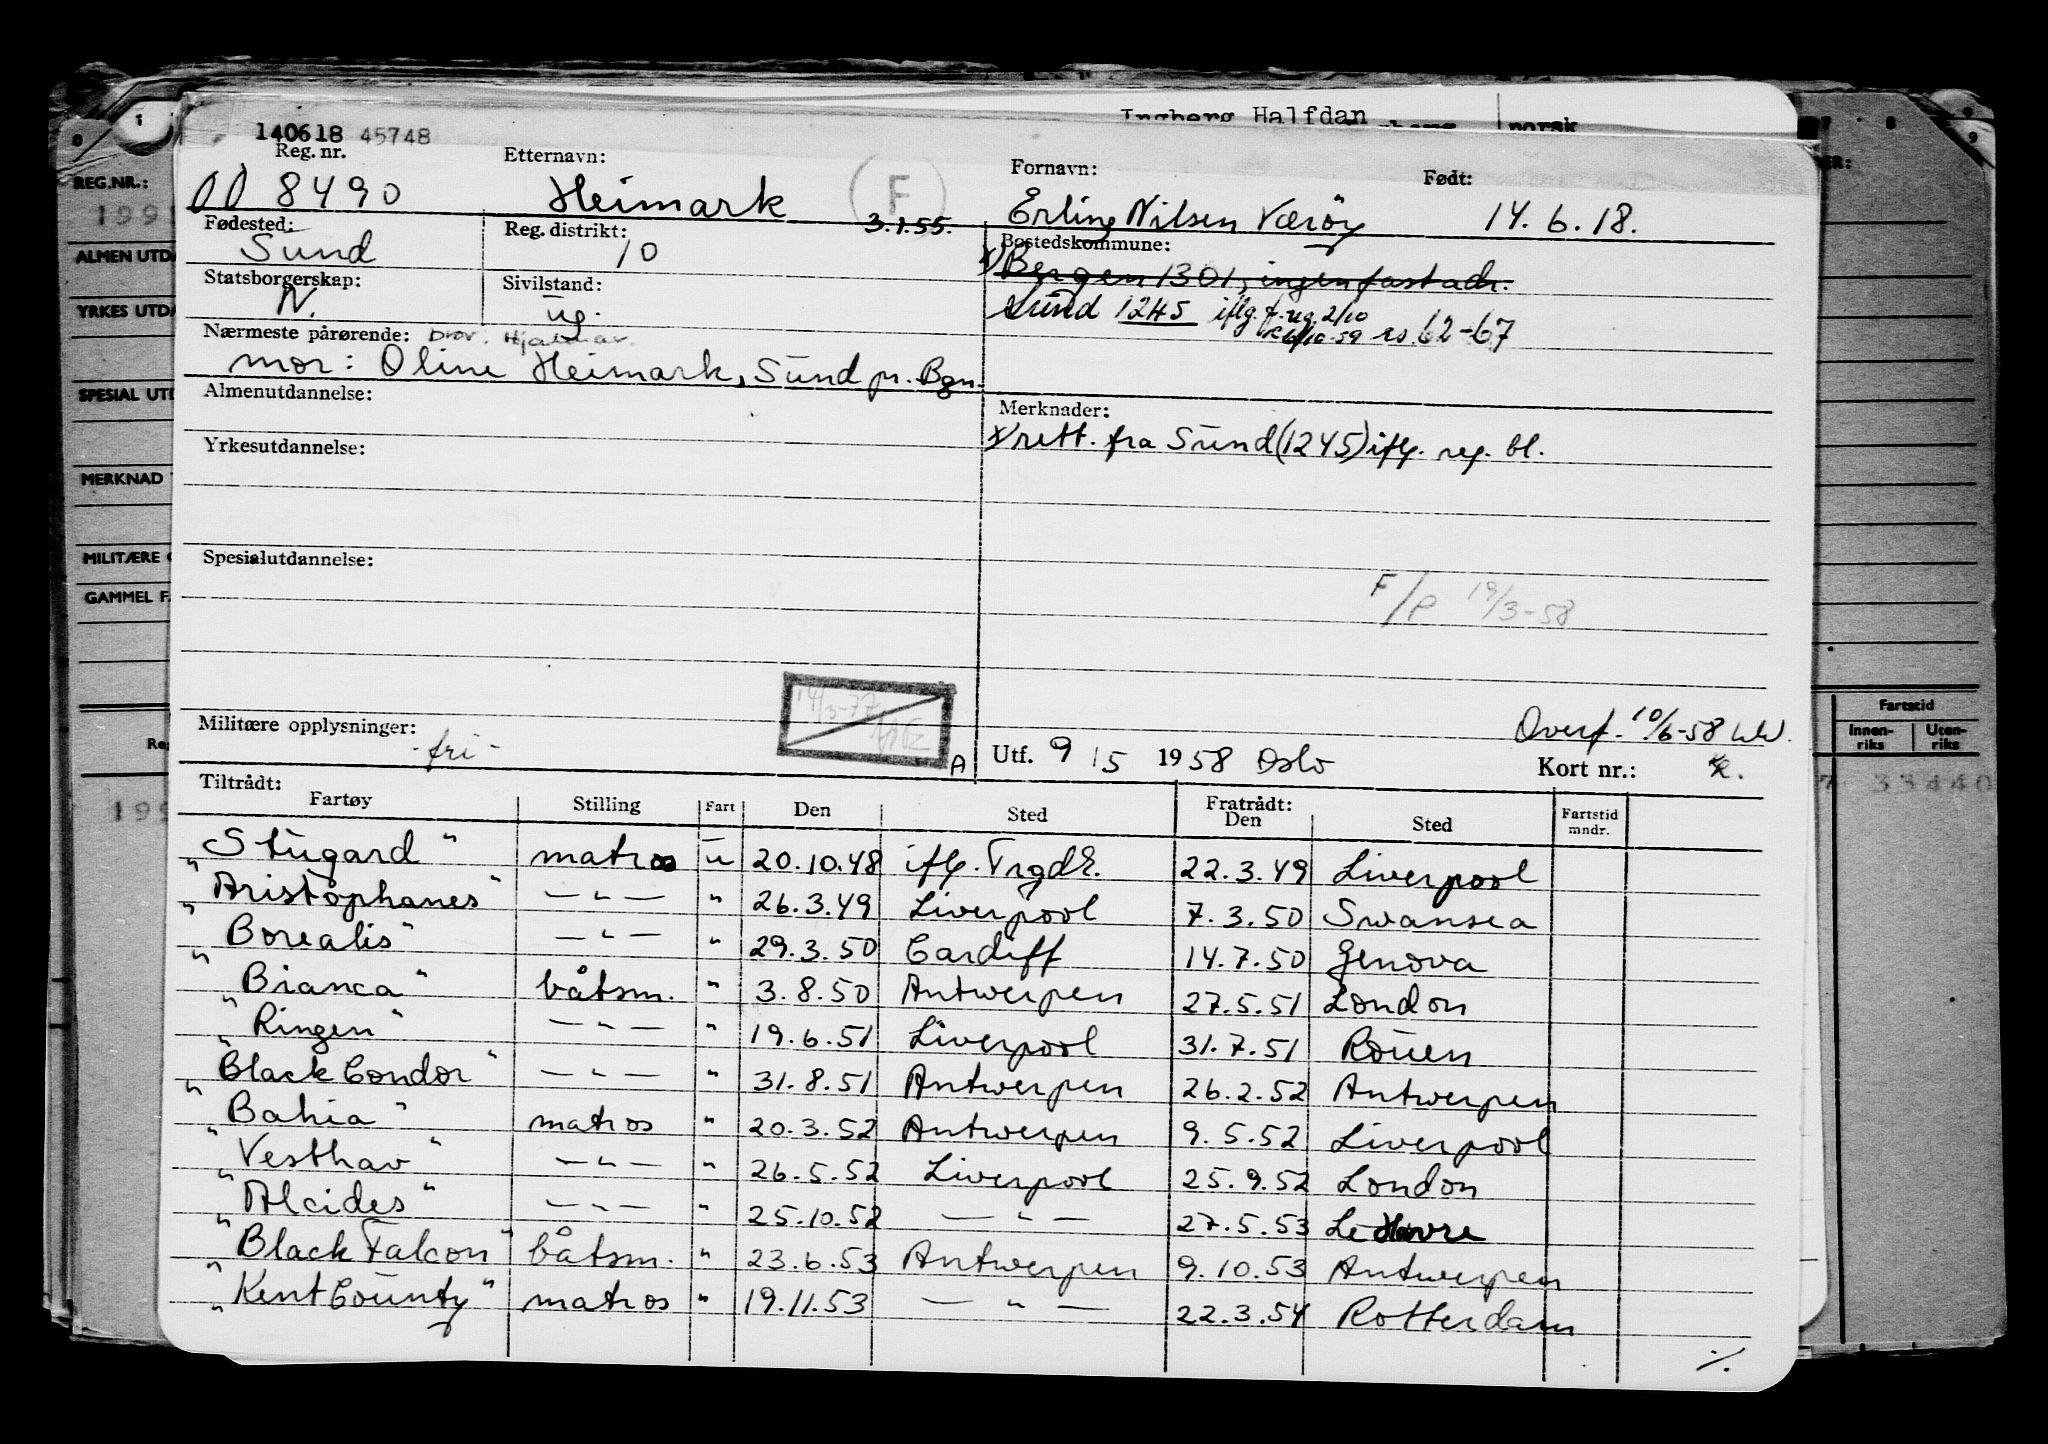 Ingberg Halfdan
norsk
140618 45748
Reg. nr. Etternavn: Fornavn: Født:
OO 8490 Heimark F Erling Nilsen Værøy 14.6.18.
3.1.55.
Fødested: Reg. distrikt: Bostedskommune:
Sund 10 x) Bergen 1301, ingen fast adr.
Statsborgerskap: Sivilstand:
N. ug. Sund 1245 iflg. f. ug. 2/10
10-59 rs 62-67
Nærmeste pårørende: bror: Hjalmar
mor: Oline Heimark, Sund pr. Bgn.
Almenutdannelse: Merknader:
x) rett. fra Sund (1245) iflg. reg. bl.
Yrkesutdannelse:
Spesialutdannelse:
F/P 19/3-58
Militære opplysninger: Overf. 10/6-58
-fri- A Utf. 9/5 1958 Oslo Kort nr.:
Tiltrådt: Fratrådt:
Fartøy Stilling Fart Den Sted Den Sted Fartstid mndr.
"Stugard" matros u 20.10.48 iflg. TrgdE. 22.3.49 Liverpool
"Aristophanes" — " — " 26.3.49 Liverpool 7.3.50 Swansea
"Borealis" — " — " 29.3.50 Cardiff 14.7.50 Genova
"Bianca" båtsm. " 3.8.50 Antwerpen 27.5.51 London
"Ringen" — " — " 19.6.51 Liverpool 31.7.51 Rouen
"Black Condor" — " — " 31.8.51 Antwerpen 26.2.52 Antwerpen
"Bahia" matros " 20.3.52 Antwerpen 9.5.52 Liverpool
"Vesthav" — " — " 26.5.52 Liverpool 25.9.52 London
"Alcides" — " — " 25.10.52 — " — 27.5.53 Le Havre
"Black Falcon" båtsm. " 23.6.53 Antwerpen 9.10.53 Antwerpen
"Kent County" matros " 19.11.53 — " — 22.3.54 Rotterdam
./.
REG.NR.:
ALMEN UTDA
YRKES UTDA
SPESIAL UTD
MERKNAD
MILITÆRE O
GAMMEL F.
Fartstid
Innenriks Utenriks
33440